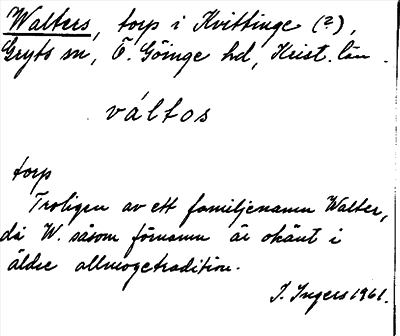 Walters, torp i Kvittinge (?),
Gryts sn, Ö. Göinge hd, Krist. län.
váltos
torp
Troligen av ett familjenamn Walter,
då W. såsom förnamn är okänt i
äldre allmogetradition.
I. Ingers 1961.